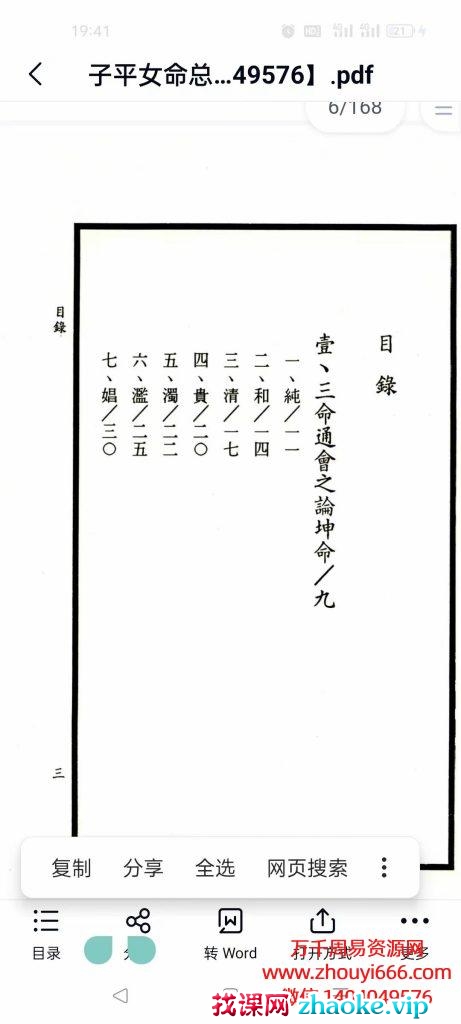 19:41
HD
4G
4G
21
子平女命总...49576】.pdf
6/168
目錄
目錄
壹、三命通會之論坤命／九
一、純／一一
二、和／一四
三、清／一七
四、貴／二〇
五、濁／二二
六、濫／二五
七、娼／三〇
三
复制
分享
全选
网页搜索
目录
转 Word
打开方式
更多
万千周易资源网
www.zhouyi666.com
找课网 zhaoke.vip